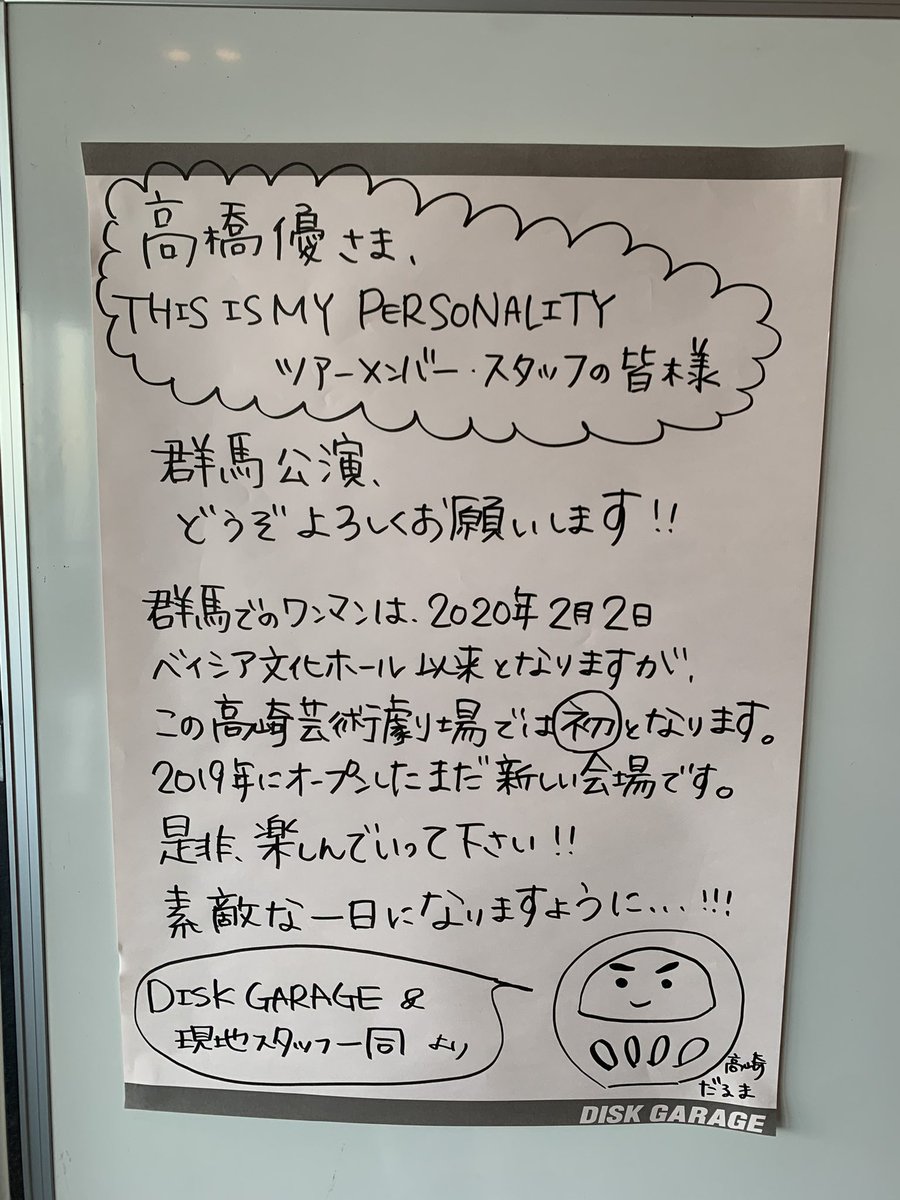 高橋優さま、
THIS IS MY PERSONALITY
ツアーメンバー・スタッフの皆様
群馬公演、
どうぞよろしくお願いします!!
群馬でのワンマンは、2020年2月2日
ベイシア文化ホール以来となりますが、
この高崎芸術劇場では初となります。
2019年にオープンしたまだ新しい会場です。
是非、楽しんでいって下さい!!
素敵な一日になりますように...!!!
DISK GARAGE &
現地スタッフ一同 より
高崎
だるま
DISK GARAGE